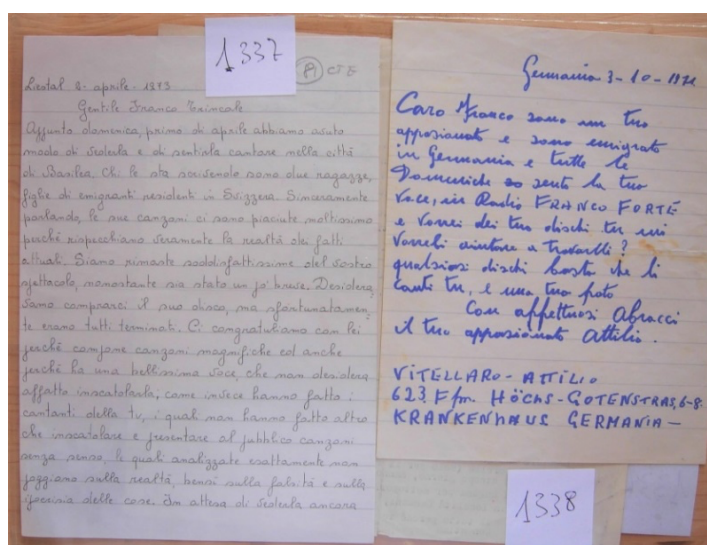 1337
A CTE
Liestal 2. aprile. 1973
Gentile Franco Trincale
Appunto domenica, primo di aprile abbiamo avuto
modo di vederla e di sentirla cantare nella città
di Basilea. Chi le sta scrivendo sono due ragazze,
figlie di emigranti residenti in Svizzera. Sinceramente
parlando, le sue canzoni ci sono piaciute moltissimo
perché rispecchiano veramente la realtà dei fatti
attuali. Siamo rimaste soddisfattissime del vostro
spettacolo, nonostante sia stato un po' breve. Desidera,
vamo comprarci il suo disco, ma sfortunatamen,
te erano tutti terminati. Ci congratuliamo con lei
perché compone canzoni magnifiche ed anche
perché ha una bellissima voce, che non desidera
affatto inscatolarla, come invece hanno fatto i
cantanti della tv, i quali non hanno fatto altro
che inscatolare e presentare al pubblico canzoni
senza senso, le quali analizzate esattamente non
poggiano sulla realtà, bensì sulla falsità e sulla
ipocrisia delle cose. In attesa di vederla ancora
Germania 3-10-1971
Caro Franco sono un tuo
appasionato e sono emigrato
in Germania e tutte le
Domeniche sento la tua
voce, in Radio FRANCO FORTE
e vorrei dei tuo dischi tu mi
vorrebi aiutare a trovarli?
qualsiosi dischi basta che li
canti tu, e una tua foto
Con affettuosi Abracci
il tuo appasionato Attilio.
VITELLARO - ATTILIO
623 Ffm. HÖCHS-GOTENSTRAS, 6-8.
KRANKENHAUS GERMANIA -
1338